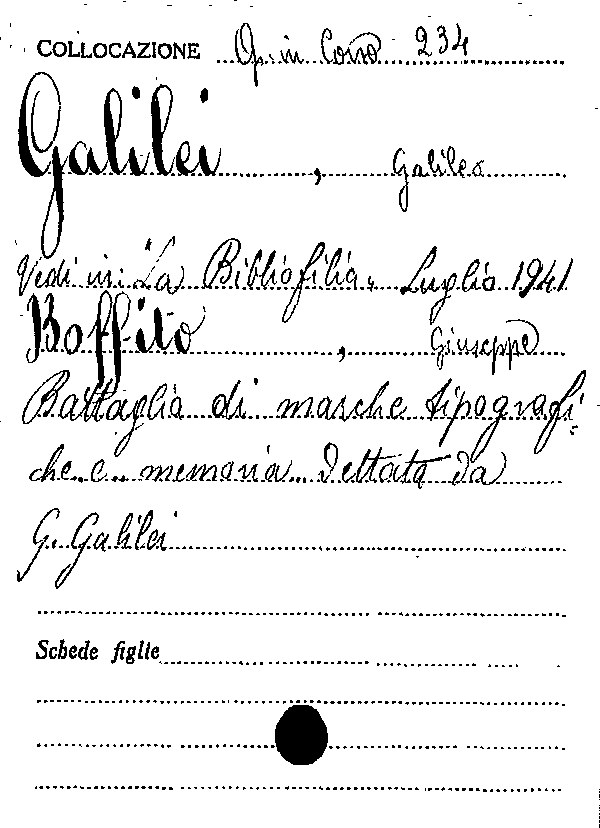 COLLOCAZIONE Op. in Corso 234
Galilei, Galileo
Vedi in: "La Bibliofilia" Luglio 1941
Boffito, Giuseppe
Battaglia di marche tipografi-
che e memoria dettata da
G. Galilei
Schede figlie